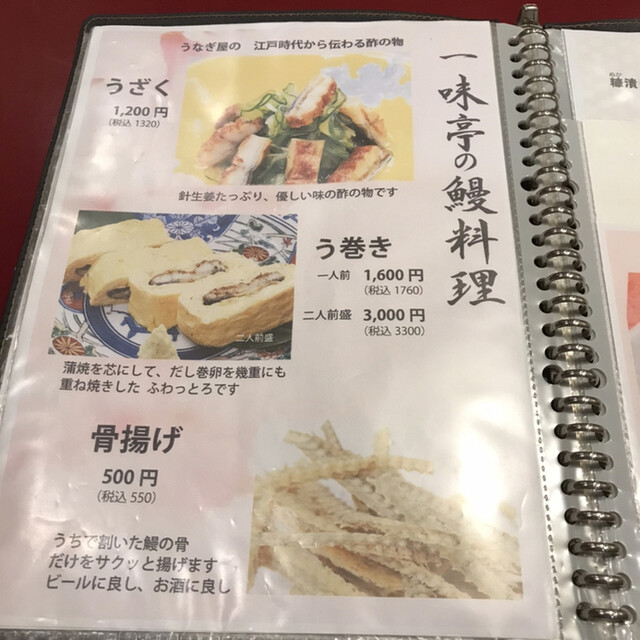 一味亭の鰻料理
うなぎ屋の 江戸時代から伝わる酢の物
うざく
1,200 円
(税込 1320)
針生姜たっぷり、優しい味の酢の物です
う巻き
一人前 1,600 円
(税込 1760)
二人前盛 3,000 円
(税込 3300)
二人前盛
蒲焼を芯にして、だし巻卵を幾重にも
重ね焼きした ふわっとろです
骨揚げ
500 円
(税込 550)
うちで割いた鰻の骨
だけをサクッと揚げます
ビールに良し、お酒に良し
ぬか
糠漬